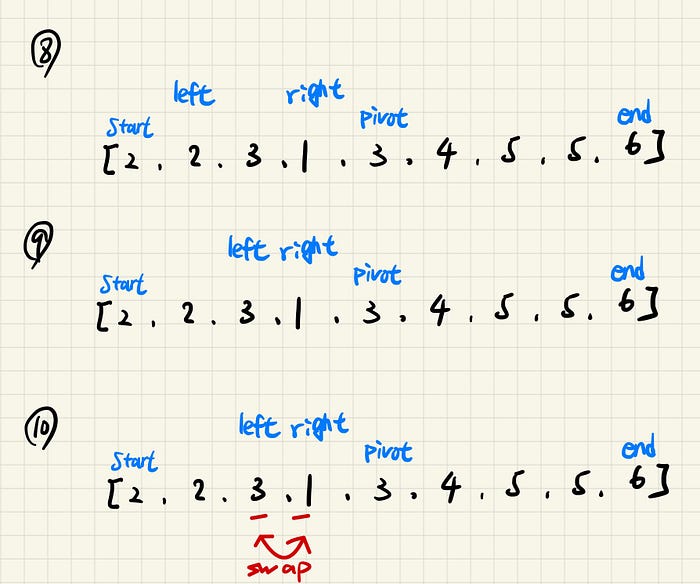 ⑧
left right
Start pivot end
[2 . 2 . 3 . 1 . 3 . 4 . 5 . 5 . 6]
⑨
left right
Start pivot end
[2 . 2 . 3 . 1 . 3 . 4 . 5 . 5 . 6]
⑩
left right
Start pivot end
[2 . 2 . 3 . 1 . 3 . 4 . 5 . 5 . 6]
swap